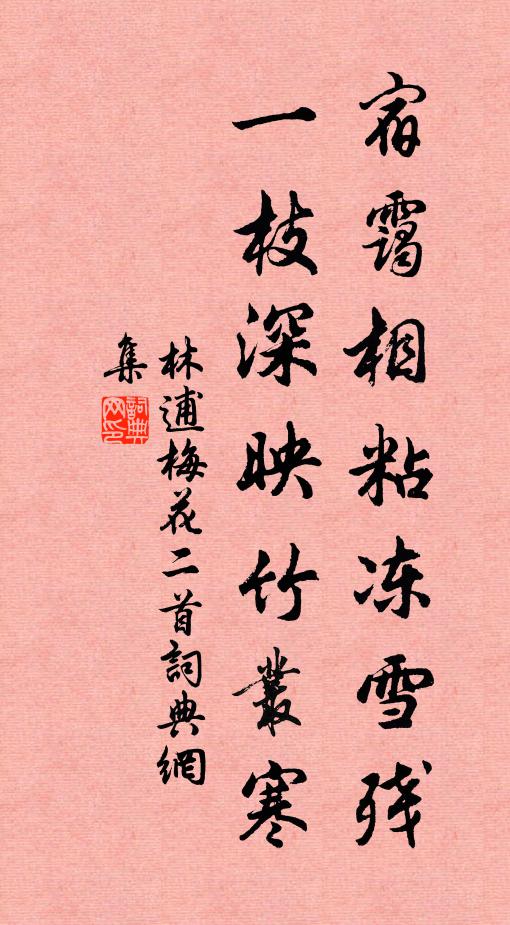 宿霭相粘冻雪残
一枝深映竹叢寒
林逋梅花二首詞典網
集
詞典
网印